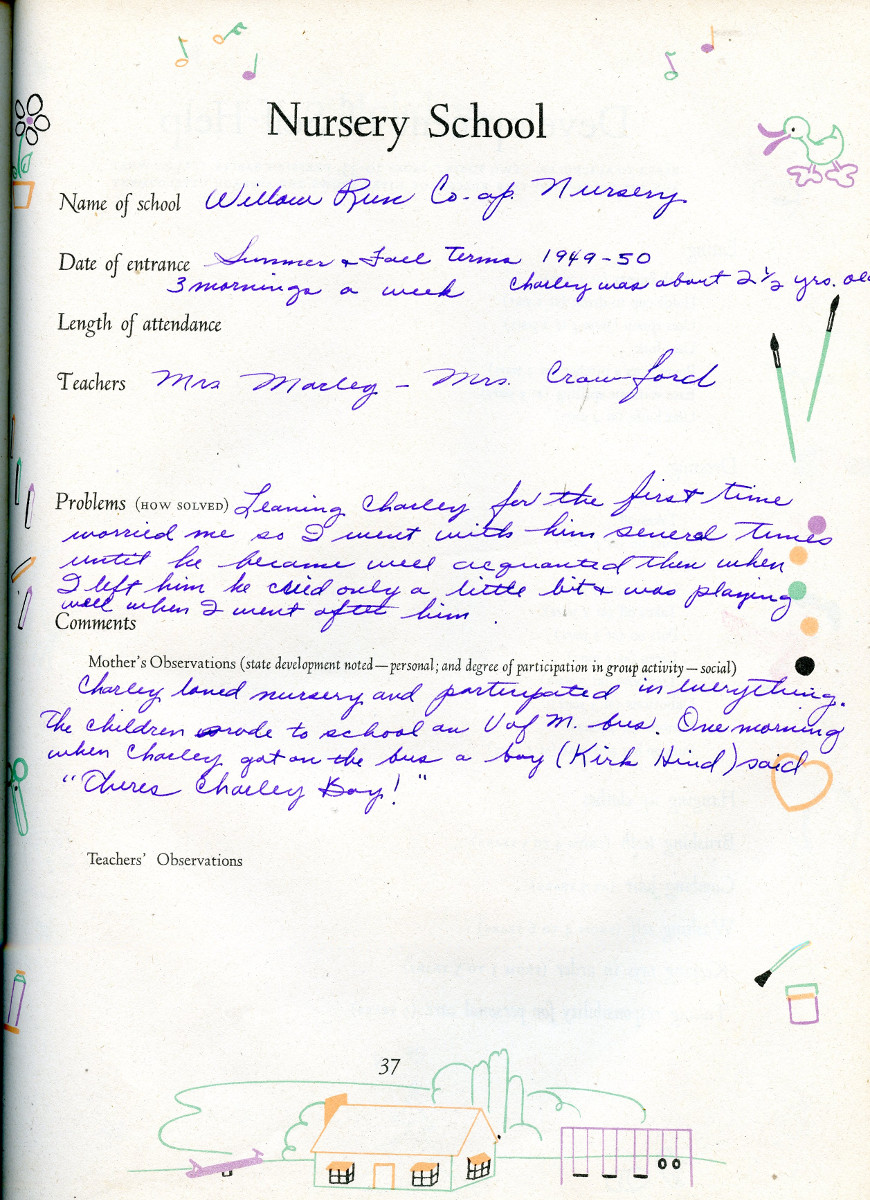 Nursery School
Name of school Willow Run Co-op. Nursery
Date of entrance Summer & Fall Terms 1949-50
3 mornings a week Charley was about 2 1/2 yrs. old
Length of attendance
Teachers Mrs Marley - Mrs. Crawford
Problems (HOW SOLVED) Leaving Charley for the first time
worried me so I went with him several times
until he became well acquanted then when
I left him he cried only a little bit & was playing
well when I went after him.
Comments
Mother's Observations (state development noted—personal; and degree of participation in group activity—social)
Charley loved nursery and participated in everything.
The children rode to school on U of M. bus. One morning
when Charley got on the bus a boy (Kirk Hind) said
"Theres Charley Boy!"
Teachers' Observations
37